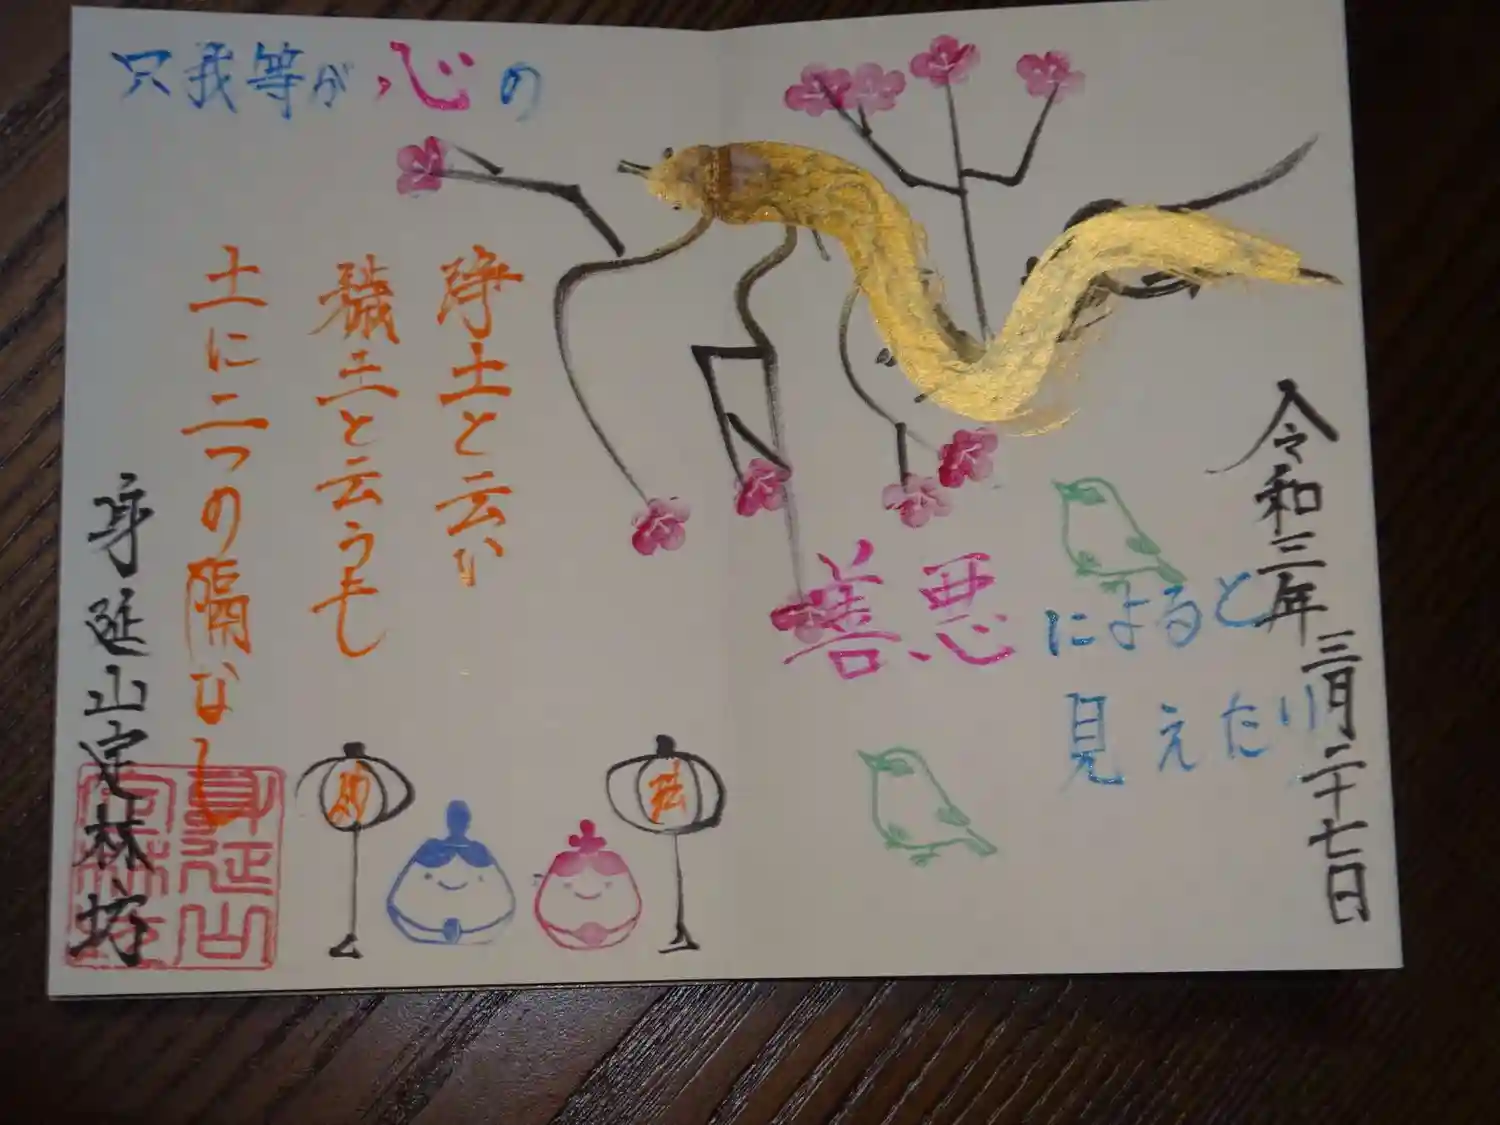 令和三年
三月二十七日
浄土と云い
穢土と云うも
土に二つの隔なし
只我等が心の
善悪によると
見えたり
身延山定林坊
身延山